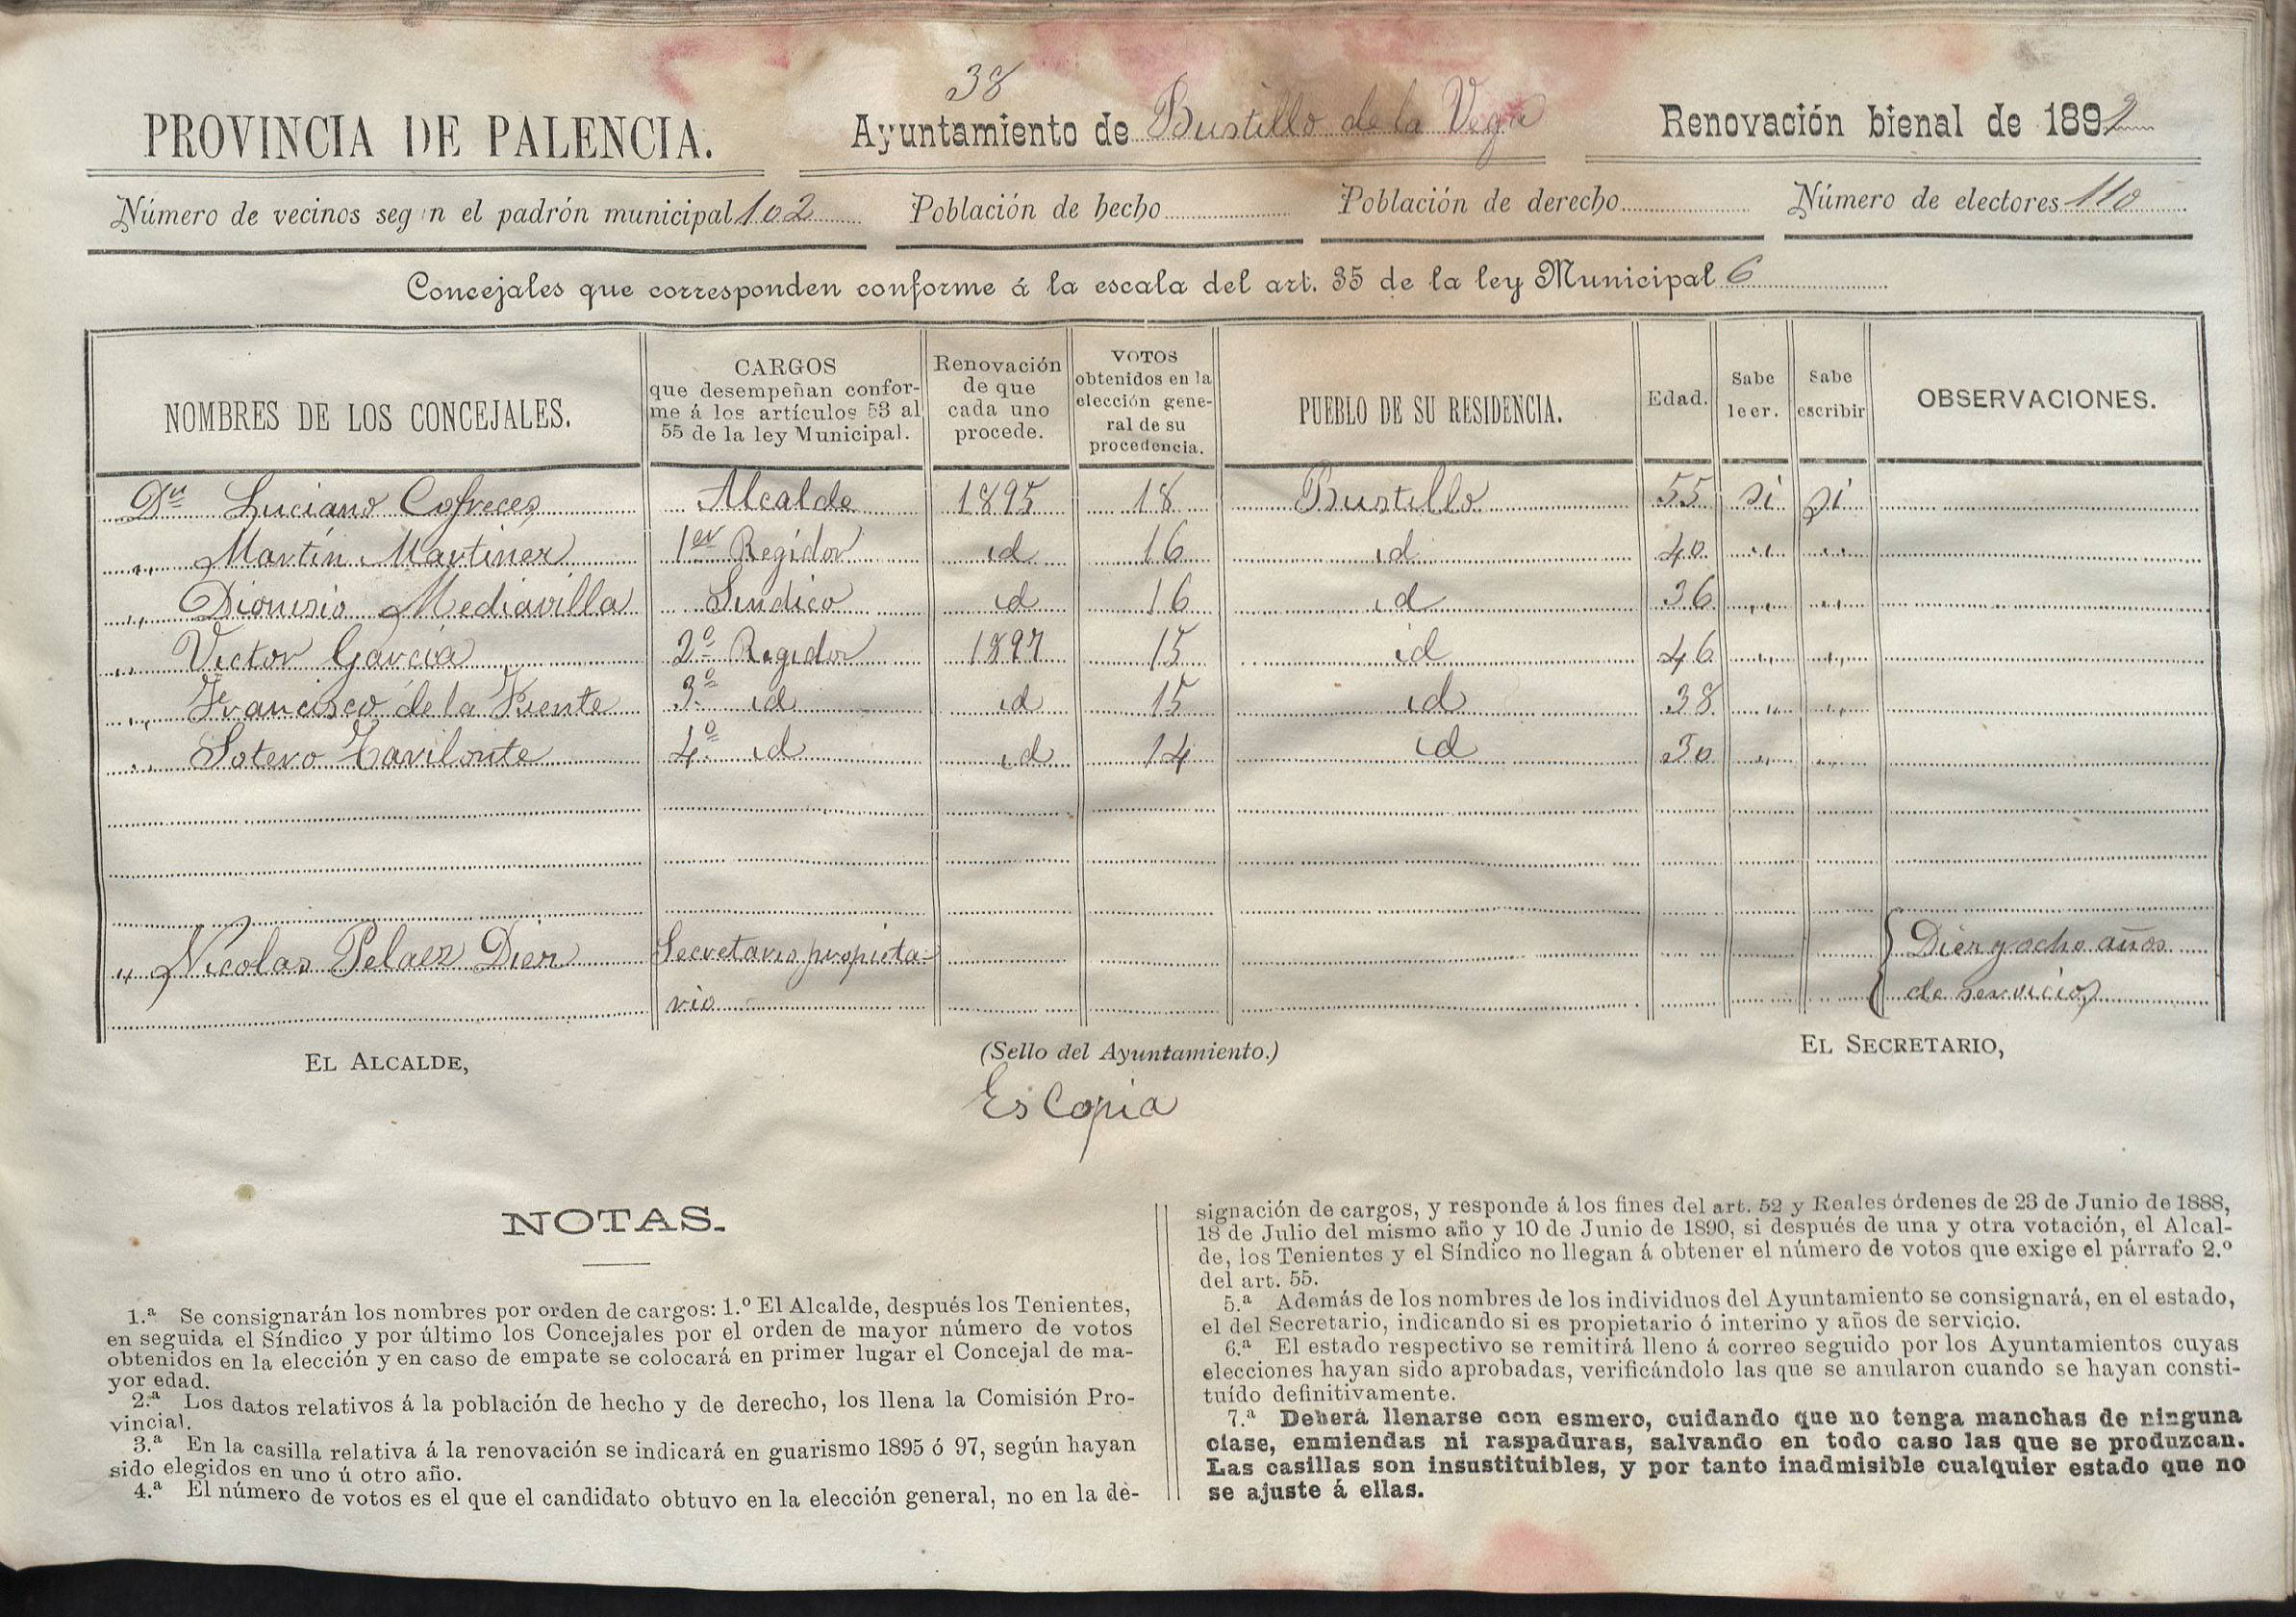 38
PROVINCIA DE PALENCIA. Ayuntamiento de Bustillo de la Vega Renovación bienal de 189
Número de vecinos seg n el padrón municipal 102 Población de hecho Población de derecho Número de electores 110
Concejales que corresponden conforme á la escala del art. 35 de la ley Municipal 6
NOMBRES DE LOS CONCEJALES. CARGOS que desempeñan confor- me á los artículos 53 al 55 de la ley Municipal. Renovación de que cada uno procede. VOTOS obtenidos en la elección gene- ral de su procedencia. PUEBLO DE SU RESIDENCIA. Edad. Sabe leer. Sabe escribir OBSERVACIONES.
Dn Luciano Cofreces Alcalde 1895 18 Bustillo 55 si si
" Martín Martinez 1er Regidor id 16 id 40 " "
" Dionisio Mediavilla Sindico id 16 id 36 " "
" Victor Garcia 2º Regidor 1897 15 id 46 " "
" Francisco de la Fuente 3º id id 15 id 38 " "
" Sotero 4º id id 14 id 30 " "
" Nicolas Pelaez Diez Secretario propieta- Diez y ocho años
rio de servicio
EL ALCALDE, (Sello del Ayuntamiento.) EL SECRETARIO,
Es Copia
NOTAS.
1.ª Se consignarán los nombres por orden de cargos: 1.º El Alcalde, después los Tenientes,
en seguida el Síndico y por último los Concejales por el orden de mayor número de votos
obtenidos en la elección y en caso de empate se colocará en primer lugar el Concejal de ma-
yor edad.
2.ª Los datos relativos á la población de hecho y de derecho, los llena la Comisión Pro-
vincial.
3.ª En la casilla relativa á la renovación se indicará en guarismo 1895 ó 97, según hayan
sido elegidos en uno ú otro año.
4.ª El número de votos es el que el candidato obtuvo en la elección general, no en la de-
signación de cargos, y responde á los fines del art. 52 y Reales órdenes de 23 de Junio de 1888,
18 de Julio del mismo año y 10 de Junio de 1890, si después de una y otra votación, el Alcal-
de, los Tenientes y el Síndico no llegan á obtener el número de votos que exige el párrafo 2.º
del art. 55.
5.ª Además de los nombres de los individuos del Ayuntamiento se consignará, en el estado,
el del Secretario, indicando si es propietario ó interino y años de servicio.
6.ª El estado respectivo se remitirá lleno á correo seguido por los Ayuntamientos cuyas
elecciones hayan sido aprobadas, verificándolo las que se anularon cuando se hayan consti-
tuído definitivamente.
7.ª Deberá llenarse con esmero, cuidando que no tenga manchas de ninguna
clase, enmiendas ni raspaduras, salvando en todo caso las que se produzcan.
Las casillas son insustituibles, y por tanto inadmisible cualquier estado que no
se ajuste á ellas.